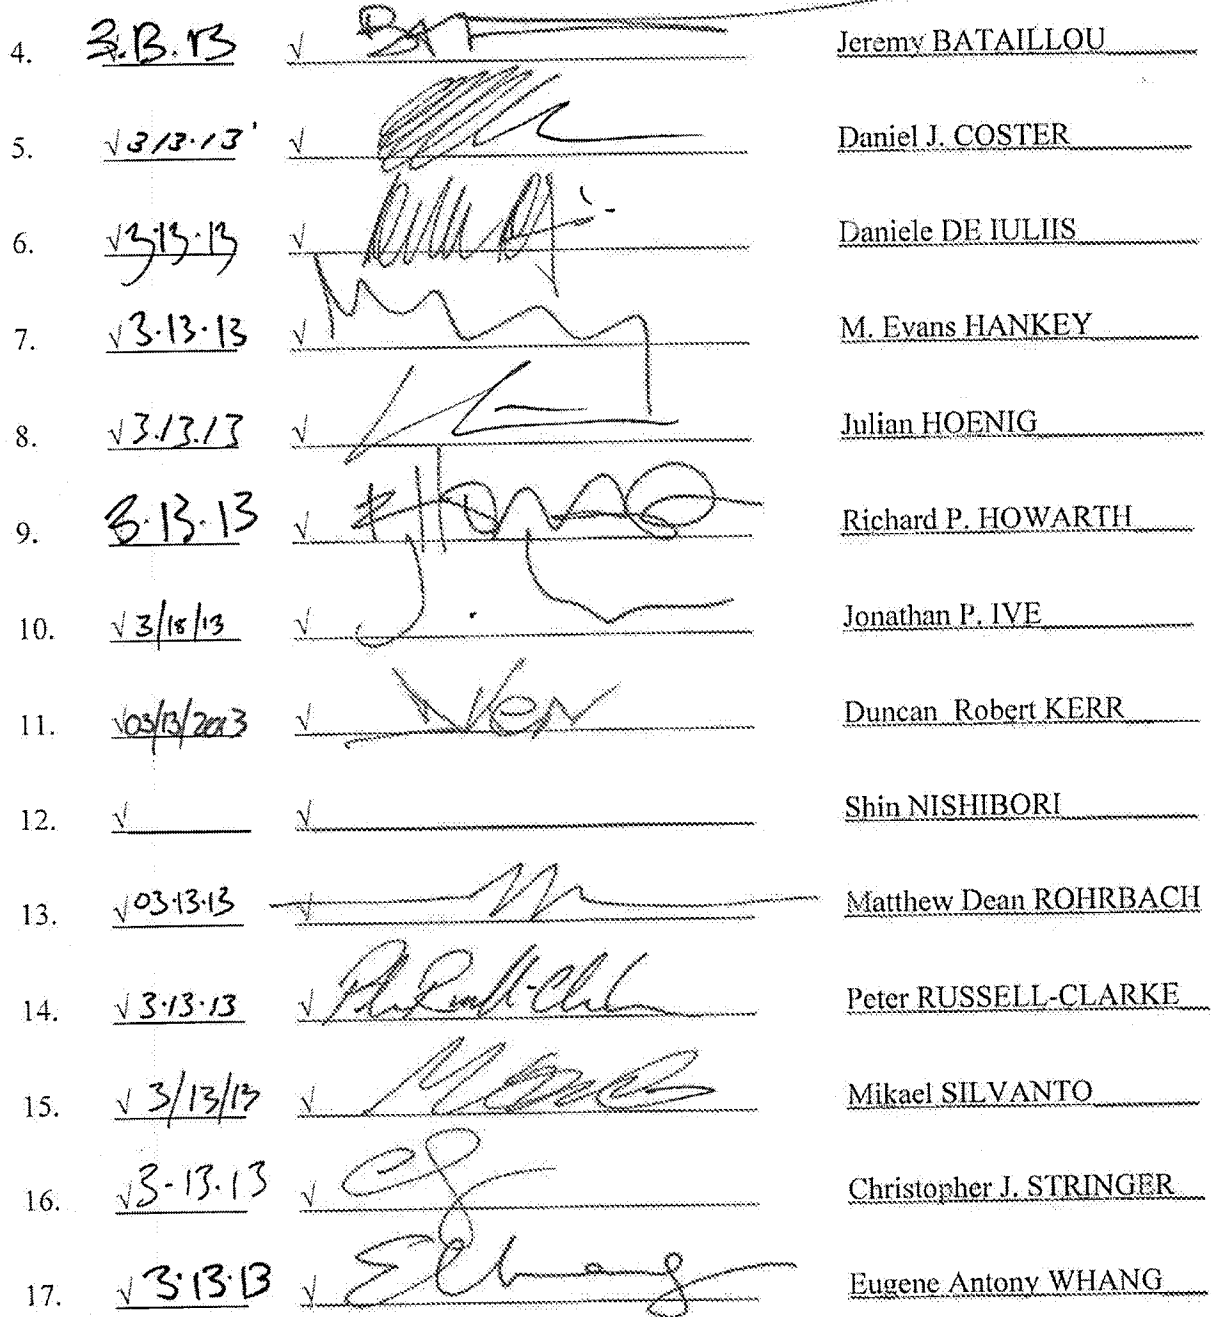 4. 3.13.13 √ Jeremy BATAILLOU
5. √3/3.13 √ Daniel J. COSTER
6. √3.13.13 √ Daniele DE IULIIS
7. √3.13.13 √ M. Evans HANKEY
8. √3.13.13 √ Julian HOENIG
9. 3.13.13 √ Richard P. HOWARTH
10. √3/18/13 √ Jonathan P. IVE
11. √03/13/2013 √ Duncan Robert KERR
12. √ √ Shin NISHIBORI
13. √03.13.13 √ Matthew Dean ROHRBACH
14. √3.13.13 √ Peter RUSSELL-CLARKE
15. √3/13/13 √ Mikael SILVANTO
16. √3-13.13 √ Christopher J. STRINGER
17. √3.13.13 √ Eugene Antony WHANG